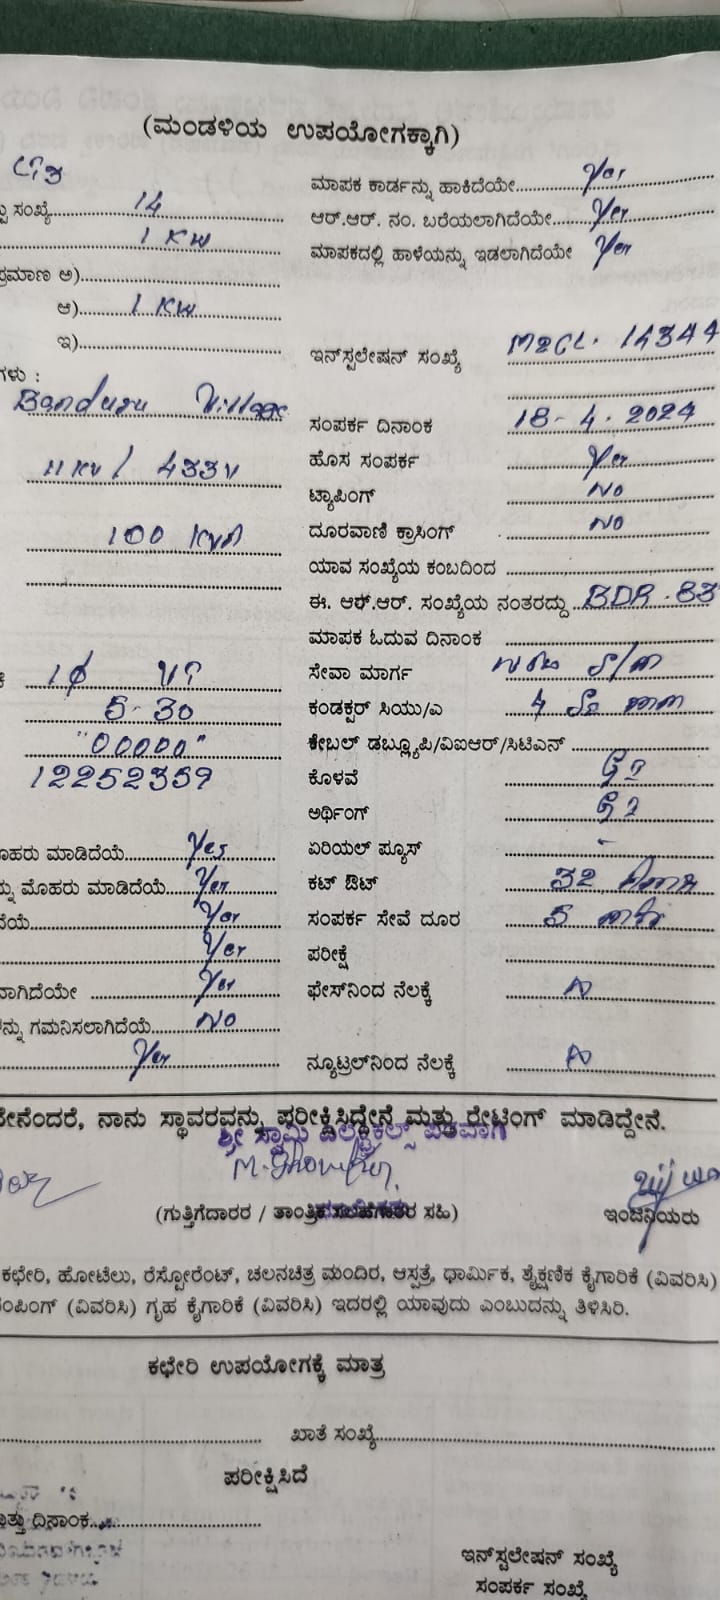 (ಮಂಡಳಿಯ ಉಪಯೋಗಕ್ಕಾಗಿ)
ಮಾಪಕ ಕಾರ್ಡನ್ನು ಹಾಕಿದೆಯೇ Yes
ಸಂಖ್ಯೆ 14 ಆರ್.ಆರ್. ನಂ. ಬರೆಯಲಾಗಿದೆಯೇ Yes
1 KW ಮಾಪಕದಲ್ಲಿ ಹಾಳೆಯನ್ನು ಇಡಲಾಗಿದೆಯೇ Yes
ಪ್ರಮಾಣ ಅ)
ಆ) 1 KW
ಇ) ಇನ್‌ಸ್ಟಲೇಷನ್ ಸಂಖ್ಯೆ 14344
ಗಳು :
Banduru Village ಸಂಪರ್ಕ ದಿನಾಂಕ 18-4.2024
11 KV / 433V ಹೊಸ ಸಂಪರ್ಕ Yes
ಟ್ಯಾಪಿಂಗ್ NO
100 KVA ದೂರವಾಣಿ ಕ್ರಾಸಿಂಗ್ NO
ಯಾವ ಸಂಖ್ಯೆಯ ಕಂಬದಿಂದ
ಈ. ಆರ್.ಆರ್. ಸಂಖ್ಯೆಯ ನಂತರದ್ದು BDR.83
ಮಾಪಕ ಓದುವ ದಿನಾಂಕ
1ϕ ಸೇವಾ ಮಾರ್ಗ
5-30 ಕಂಡಕ್ಟರ್ ಸಿಯು/ಎ 4
"00000" ಕೇಬಲ್ ಡಬ್ಲ್ಯೂಪಿ/ವಿಐಆರ್/ಸಿಟಿಎನ್
12252359 ಕೊಳವೆ GI
ಅರ್ಥಿಂಗ್ GI
ಮೊಹರು ಮಾಡಿದೆಯೆ Yes ಏರಿಯಲ್ ಫ್ಯೂಸ್ -
ಮೊಹರು ಮಾಡಿದೆಯೆ Yes ಕಟ್ ಔಟ್ 32
Yes ಸಂಪರ್ಕ ಸೇವೆ ದೂರ 5
Yes ಪರೀಕ್ಷೆ
Yes ಫೇಸ್‌ನಿಂದ ನೆಲಕ್ಕೆ
ಗಮನಿಸಲಾಗಿದೆಯೆ NO
Yes ನ್ಯೂಟ್ರಲ್‌ನಿಂದ ನೆಲಕ್ಕೆ
ನಾನು ಸ್ಥಾವರವನ್ನು ಪರೀಕ್ಷಿಸಿದ್ದೇನೆ ಮತ್ತು ರೇಟಿಂಗ್ ಮಾಡಿದ್ದೇನೆ.
ಶ್ರೀ ಸ್ವಾಮಿ ಎಲೆಕ್ಟ್ರಿಕಲ್ಸ್ ಪರವಾಗಿ
(ಗುತ್ತಿಗೆದಾರರ / ತಾಂತ್ರಿಕ ಸಲಹೆಗಾರರ ಸಹಿ) ಇಂಜಿನಿಯರು
ಕಛೇರಿ, ಹೋಟೆಲು, ರೆಸ್ಟೋರೆಂಟ್, ಚಲನಚಿತ್ರ ಮಂದಿರ, ಆಸ್ಪತ್ರೆ, ಧಾರ್ಮಿಕ, ಶೈಕ್ಷಣಿಕ ಕೈಗಾರಿಕೆ (ವಿವರಿಸಿ)
ಪಂಪಿಂಗ್ (ವಿವರಿಸಿ) ಗೃಹ ಕೈಗಾರಿಕೆ (ವಿವರಿಸಿ) ಇದರಲ್ಲಿ ಯಾವುದು ಎಂಬುದನ್ನು ತಿಳಿಸಿರಿ.
ಕಛೇರಿ ಉಪಯೋಗಕ್ಕೆ ಮಾತ್ರ
ಖಾತೆ ಸಂಖ್ಯೆ
ಪರೀಕ್ಷಿಸಿದೆ
ಮತ್ತು ದಿನಾಂಕ
ಇನ್‌ಸ್ಟಲೇಷನ್ ಸಂಖ್ಯೆ
ಸಂಪರ್ಕ ಸಂಖ್ಯೆ